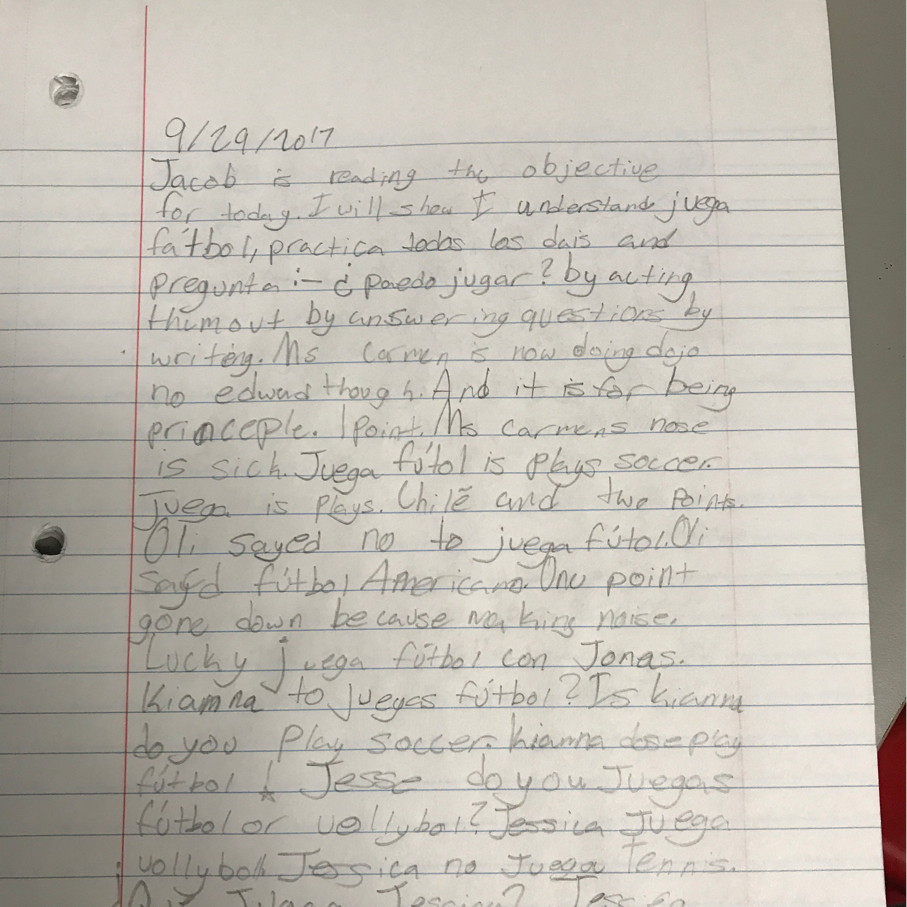 9/29/2017
Jacob is reading the objective
for today. I will show I understande juega
fátbol, practica todos los dais and
pregunta :- ¿ puedo jugar? by acting
thim out by answering questions by
writing. Ms Carmen is now doing dojo
no edward though. And it is for being
princeple. 1 Point. Ms Carmens nose
is sich. Juega fútol is plays soccer.
juega is plays. Chilē and two Points.
Oli sayed no to juega fútol. Oli
sayed fútbol Americano. One point
gone down because making noise.
Lucky juega fútbol con Jonas.
Kiamna to juegas fútbol? Is kianna
do you Play soccer. kianna dose play
fútbol! Jesse do you Juegas
fútbol or vollybol? Jessica Juega
vollyboll Jessica no Juega Tennis.